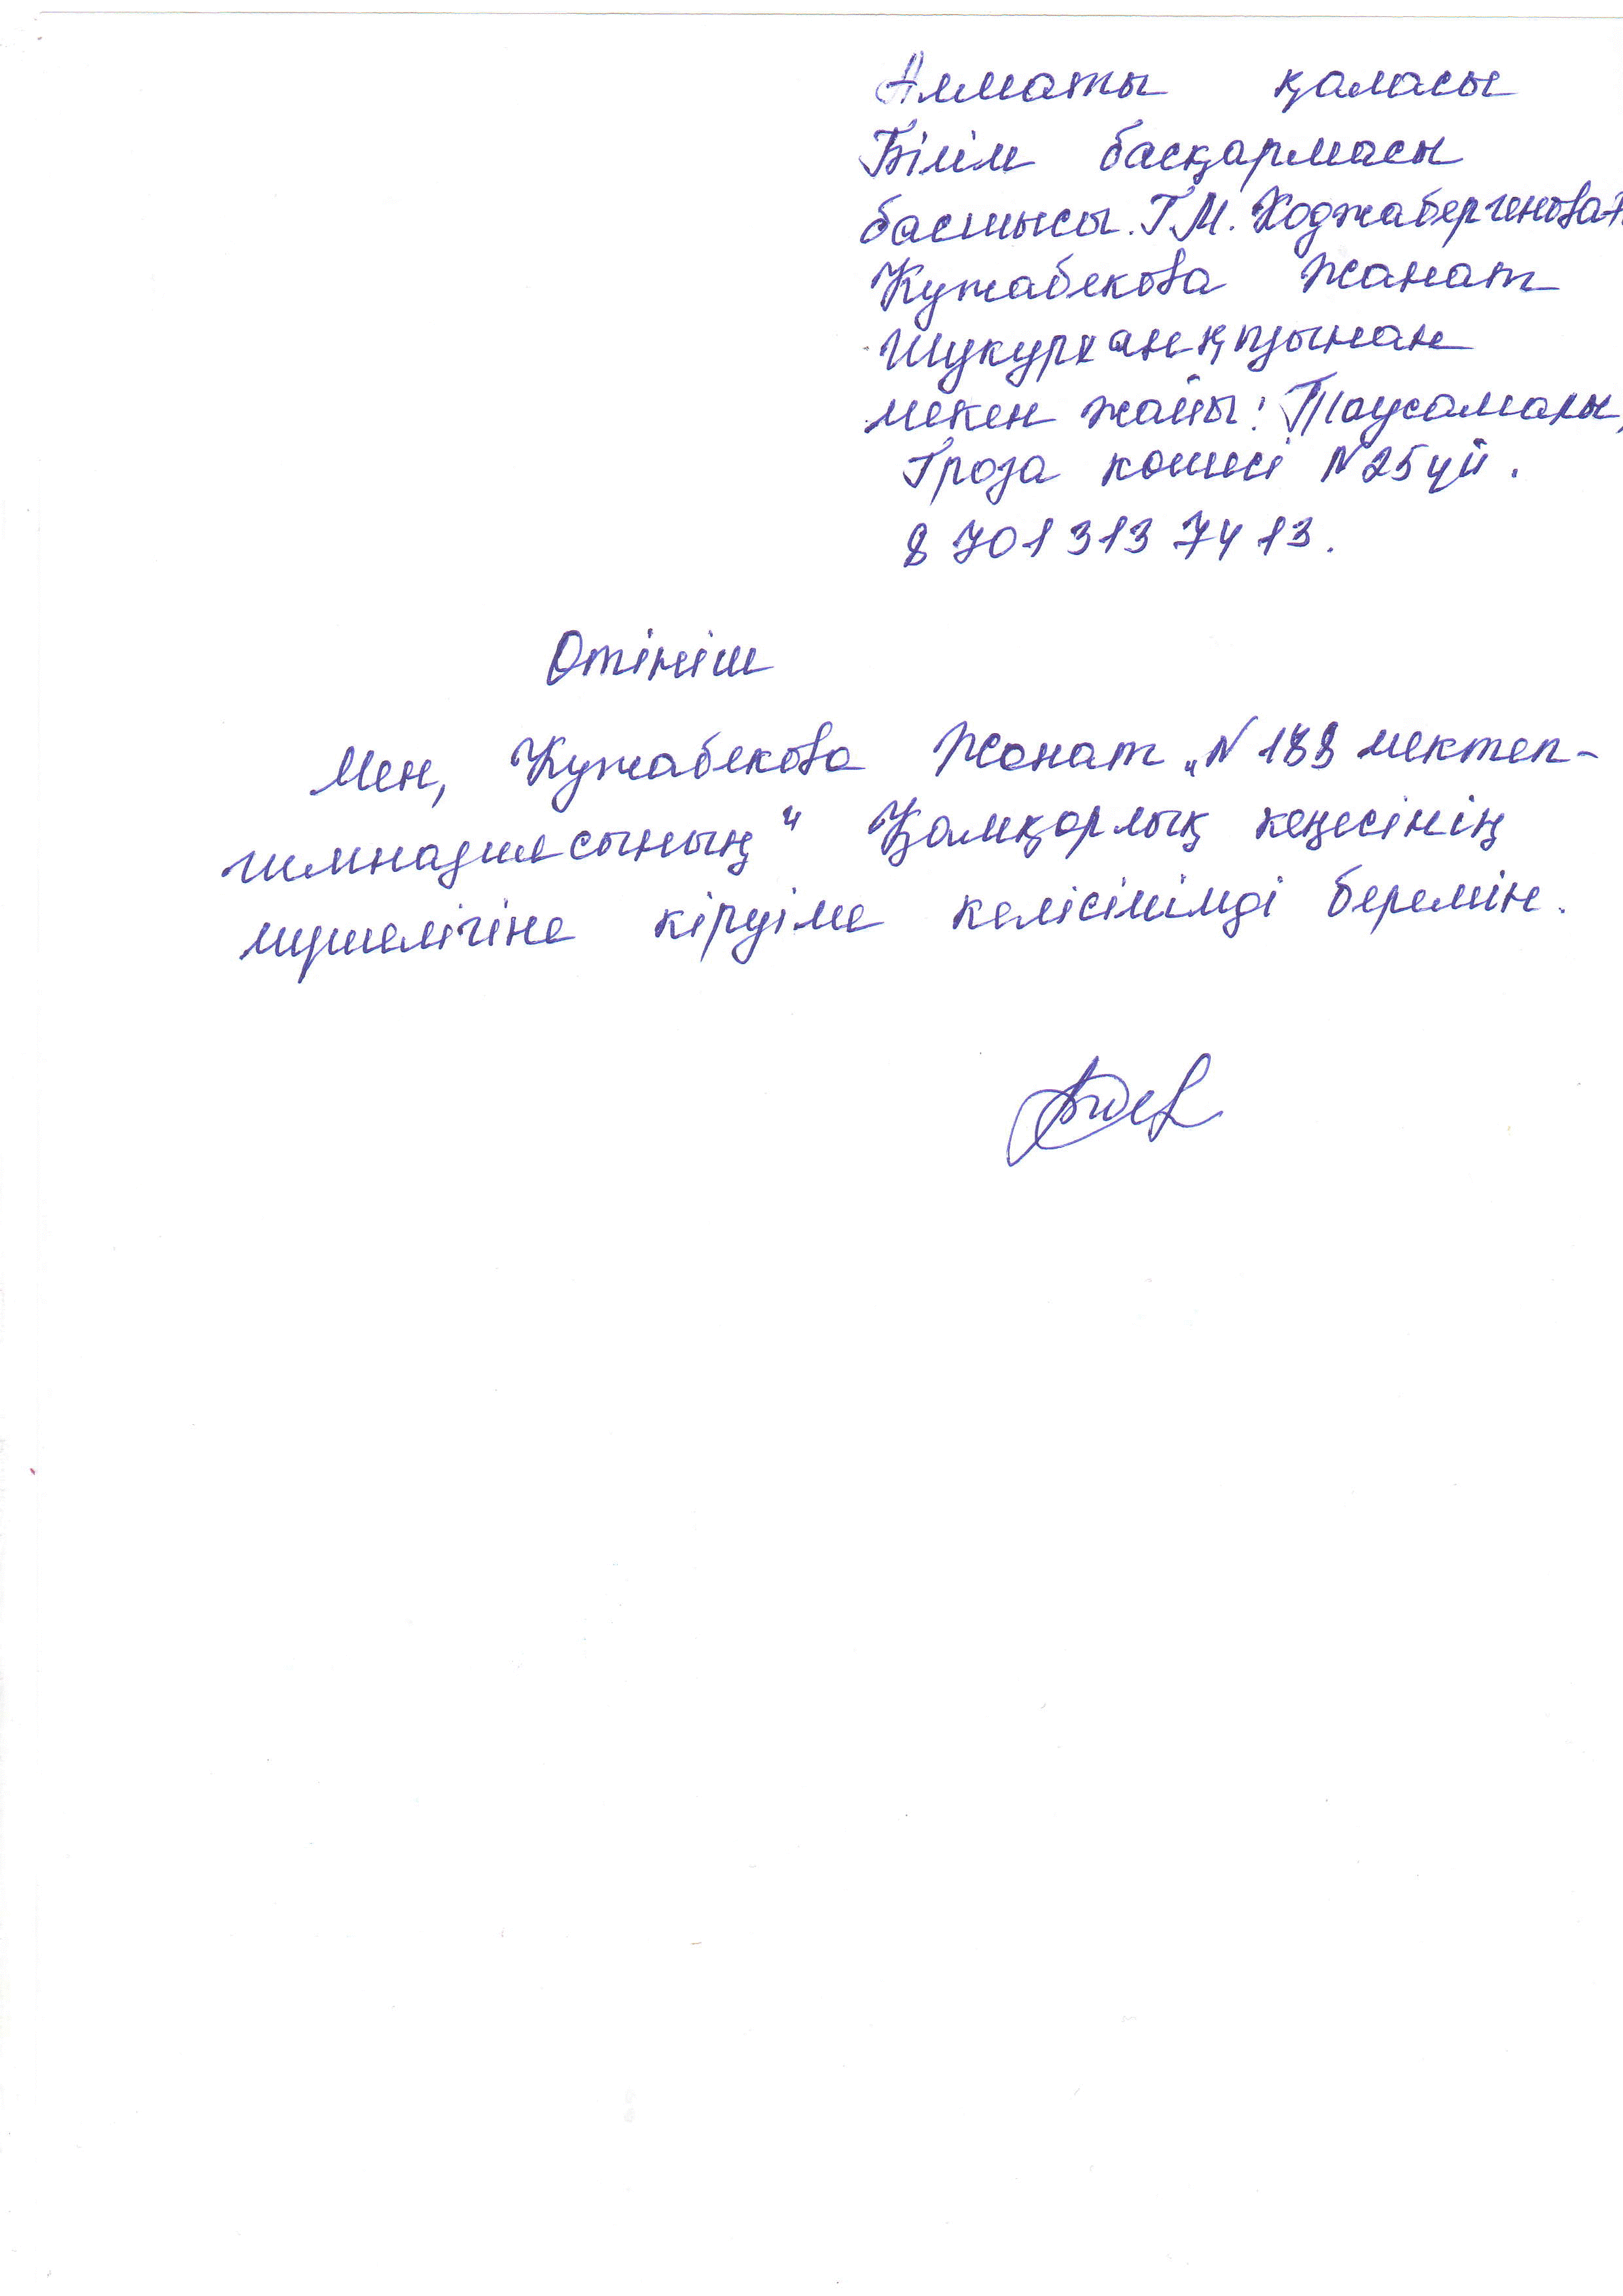 Алматы қаласы
Білім басқармасы
басшысы. Г.М. Ходжабергенова-
Кужабекова Жанат
Шукурханқызынан
мекен жайы: Таусамалы,
Гроза көшесі N25 үй.
8 701 313 74 13.
Өтініш
Мен, Кужабекова Жанат „N 188 мектеп-
гимназиясының“ Қамқорлық кеңесінің
мүшелігіне кіруіме келісімімді беремін.